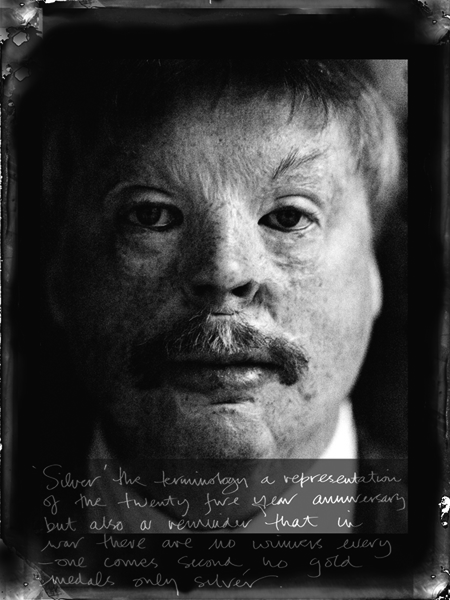 'Silver' the terminology a representation
of the twenty five year anniversary
but also a reminder that in
war there are no winners every
-one comes second, no gold
medals only silver.